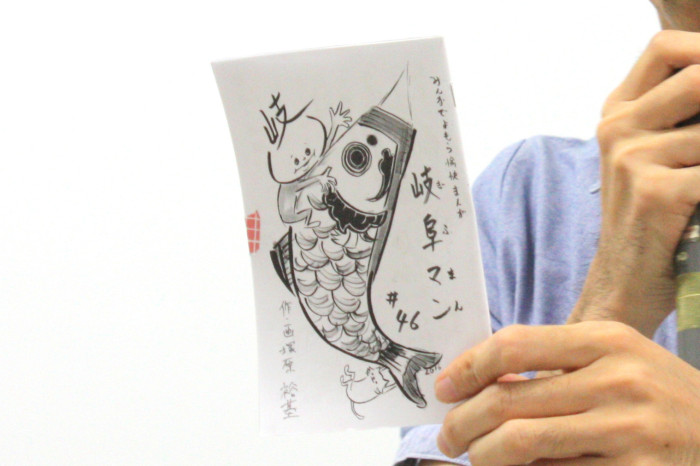 みんなでよもう愉快まんが
岐阜マン
ぎふまん
#46
岐
作・画 塚原 裕基